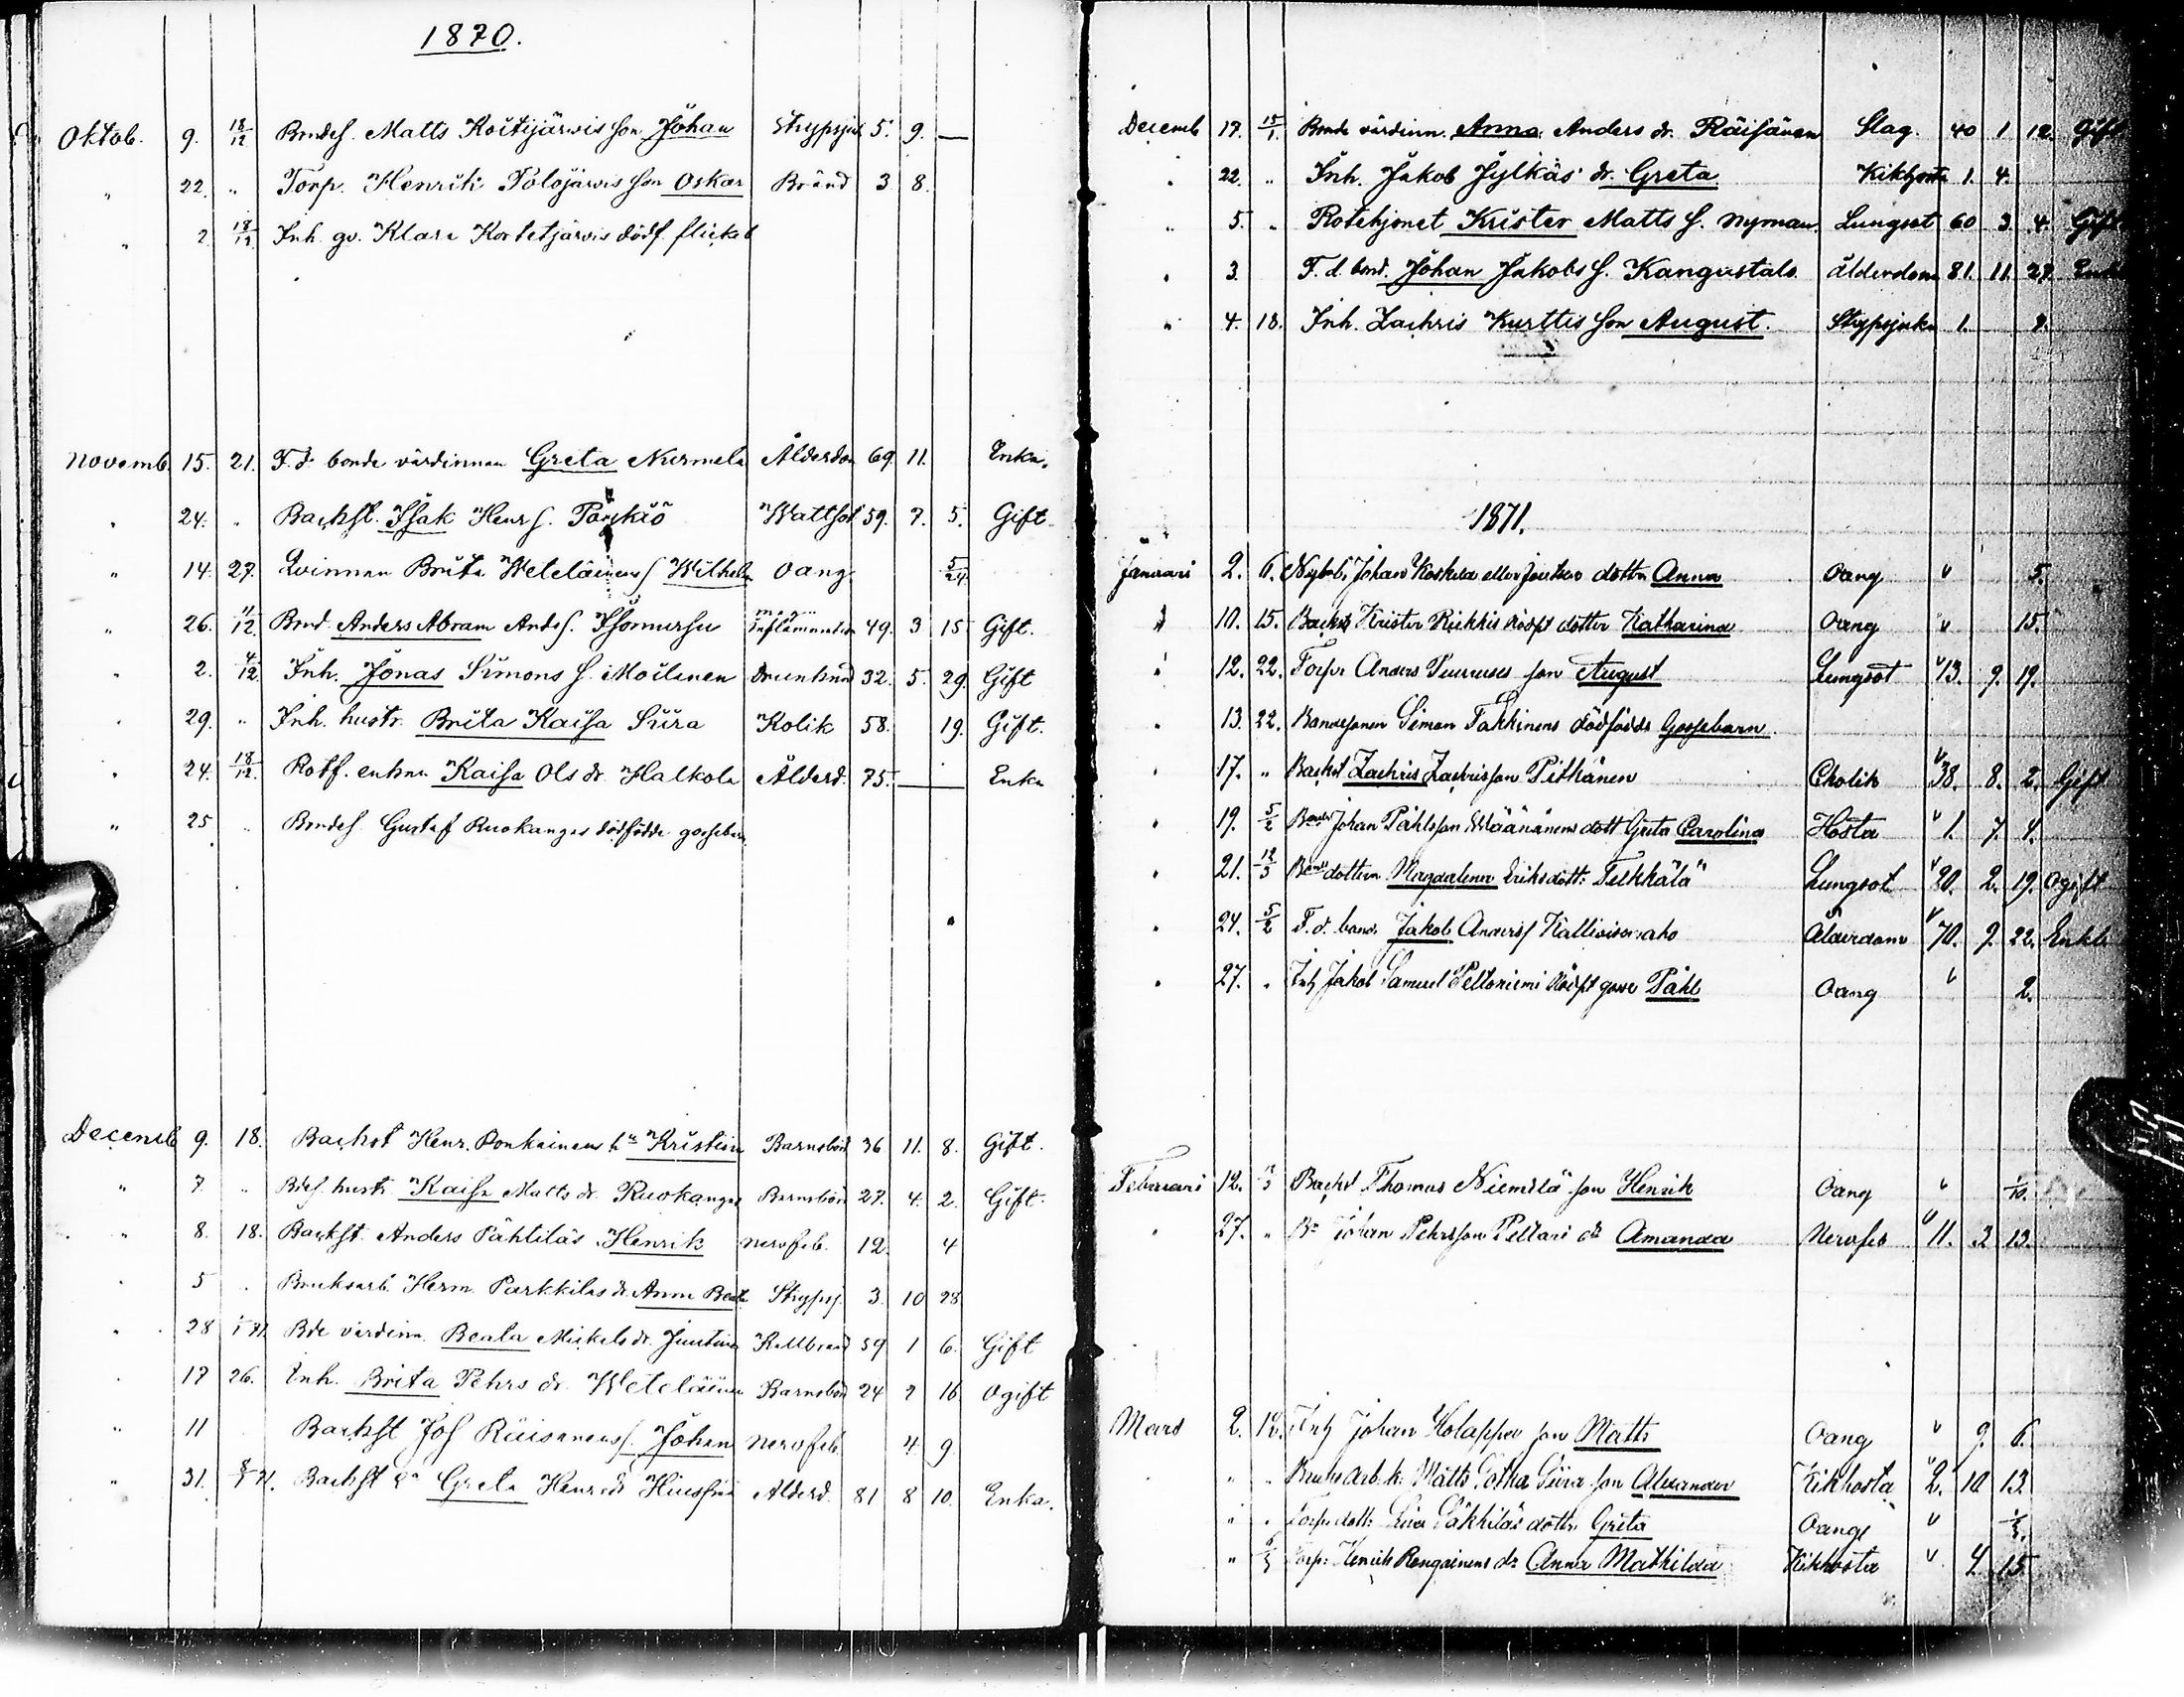 1870.
Oktob. 9. 18/12 Bondes. Matts Koitijärwis son Johan Strypsjuk 5. 9. —
" 22. " Torp. Henrik Polojärwis son Oskar Bränd 3 8.
" 2. 18/12 Inh. gv. Klara Kortetjärvis dödf. flickeb
Novemb. 15. 21. F. d. bonde värdinnan Greta Nurmela Ålderdom 69. 11. Enka.
" 24. " Backst. Isak Henr s. Wattsot 59. 7. 5. Gift
" 14. 27. Qvinnan Brita Weteläinens s. Wilhelm Oang. 5/24.
" 26. 11/12. Bond. Anders Abram Ands s. inflammation 49. 3 15 Gift.
" 2. 4/12. Inh. Jonas Simons s. Moilanen Drunknad 32. 5. 29. Gift
" 29. " Inh. hustr. Brita Kaisa Siira Kolik 58. 19. Gift.
" 24. 18/12. Rotf. enkan Kaisa Ols dr. Halkola Ålderd. 75. — Enka
" 25 " Bondes. Gustaf Ruokangas dödfödde gossebarn
Decemb 9. 18. Backst Henr. Ponkainens hu Kristina Barnsbörd 36 11. 8. Gift.
" 7. " hustr. Kaisa Matts dr. Ruokangas Barnsbörd 27. 4. 2. Gift.
" 8. 18. Backst. Anders Pähtiläs Henrik Nervfeb. 12. 4
" 5 " Bruksarb. Herm. Parkkilas dr. Anna Beata Strypsj. 3. 10 28
" 28 Bde värdinn. Beata Mickels dr. Juntunen Kallbrand 59 1 6. Gift
" 17 26. Inh. Brita Pehrs dr. Weteläinen Barnsbörd 24 7 16 Ogift
" 11 Backst Jos Räisänens s. Johan Nervfeb. 4. 9.
" 31. Backst Greta Henr dr Ålderd. 81 8 10. Enka.
Decemb 17. 15/1. Bonde värdinn. Anna Anders dr. Räisänen Slag. 40 1 12. Gift
" 22. " Inh. Jakob Jylkäs dr. Greta Kikhosta 1. 4.
" 5. " Rotehjonet Krister Matts s. Nyman Lungsot 60 3. 4. Gift
" 3. F. d. bond. Johan Jakobs s. Kangastalo Ålderdom 81. 11. 27. Enkl
" 4. 18. Inh. Zachris Kurttis son August. Strypsjuka 1. 8.
1871.
Januari 2. 6. Johan Koskela eller dotter Anna Oang " 5.
" 10. 15. Backst Krister Riekkis dotter Katharina Oang " 15.
" 12. 22. Torp. Anders Puurunes son August Lungsot " 13. 9. 19.
" 13. 22. Bondesonen Simon Takkinens dödfödda Gossebarn.
" 17. " Backst Zachris Zachrisson Pitkänen Cholik " 38. 8. 2. Gift
" 19. 5/2 Johan Påhlsson Wäänänens dott Greta Carolina Hosta " 1. 7. 4.
" 21. 12/3 dottern Magdalena Eriksdott: Lungsot " 20. 2. 19. Ogift
" 24. 5/2 F. d. bond. Jakob Anders s Kallioisenaho Ålderdom " 70. 9. 22. Enkl.
" 27. " Inh Jakob Samuel Peltoniemi gosse Påhl Oang " 2.
Februari 12. Backst Thomas Niemelä son Henrik Oang " 1/10.
" 27. " Bs Johan Pehrsson Peltari dr Amanda Nervfeb " 11. 2 13.
Mars 2. 12. Inh Johan Kolappa son Matts Oang " 9. 6.
" " Bruksarb. k: Matts Siira son Alexander Kikhosta " 2. 10 13.
" " Torp. dott: dottr. Greta Oang "
" " Torp: Henrik Rengainens dr Anna Mathilda Kikhosta " 4. 15